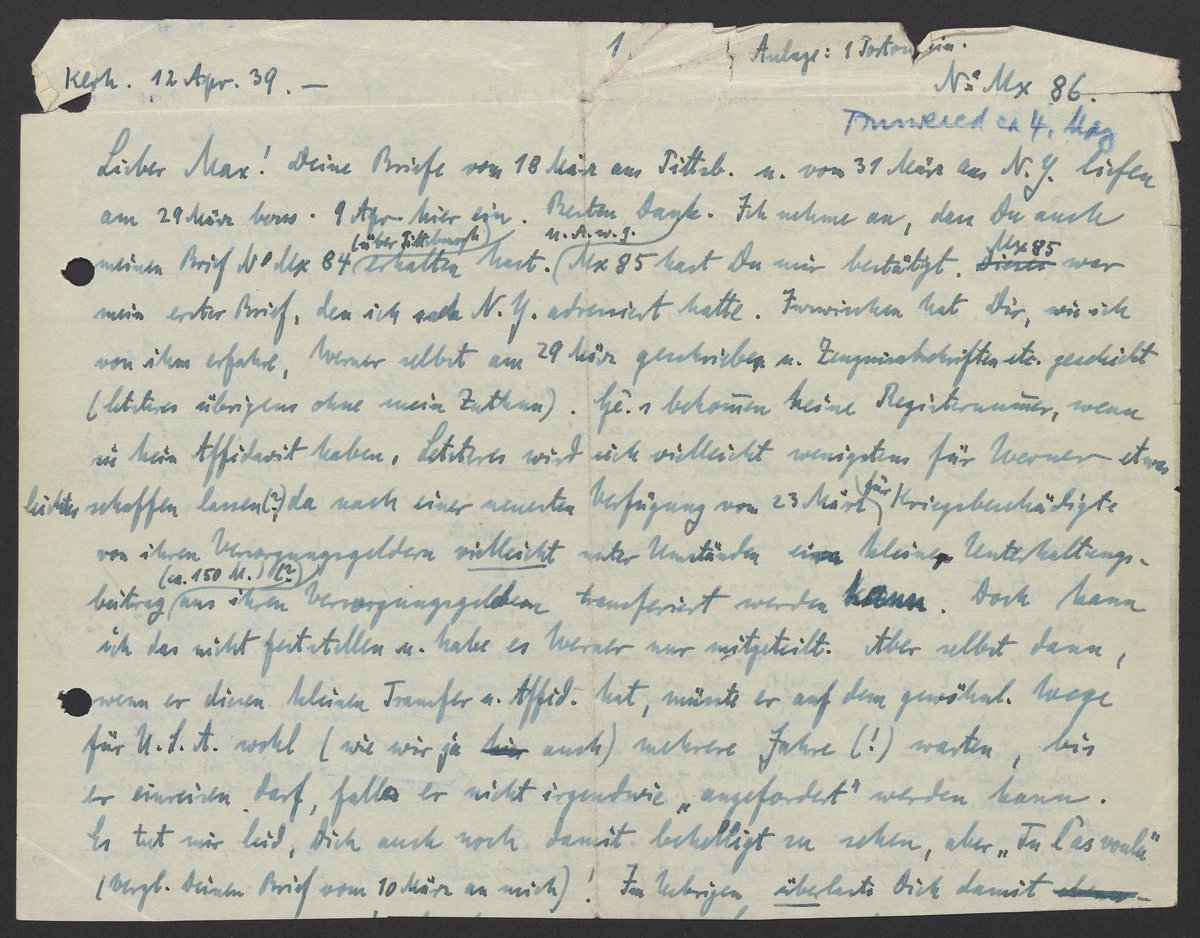 1
Anlage: 1 Portoschein.
Kerh. 12 Apr. 39. —
No Mx 86.
Answered on 4. May
Lieber Max! Deine Briefe vom 18 März aus Pittsb. u. vom 31 März aus N.Y. liefen
am 29 März bezw. 9 Apr. hier ein. Besten Dank. Ich nehme an, dass Du auch
(über Pittsburgh) u. A. w. g. Mx 85
meinen Brief No Mx 84 erhalten hast. Mx 85 hast Du mir bestätigt. Dieses war
mein erster Brief, den ich nach N.Y. adressiert hatte. Inzwischen hat Dir, wie ich
von ihm erfahre, Werner selbst am 29 März geschrieben u. Zeugnisabschriften etc. geschickt
(letzteres übrigens ohne mein Zuthun). bekom̄en keine Registernum̄er, wenn
sie kein Affidavit haben. Letzteres wird sich vielleicht wenigstens für Werner etwas
leichter schaffen lassen (?), da nach einer neuesten Verfügung vom 23 März für Kriegsbeschädigte
von ihren Versorgungsgeldern vielleicht unter Umständen ein kleiner Unterhaltungs-
(ca. 150 M.) (?)
beitrag aus ihren Versorgungsgeldern transferiert werden kann. Doch kann
ich das nicht feststellen u. habe es Werner nur mitgeteilt. Aber selbst dann,
wenn er diesen kleinen Transfer u. Affid. hat, müsste er auf dem gewöhnl. Wege
für U.S.A. wohl (wie wir ja hier auch) mehrere Jahre (!) warten, bis
er einreisen darf, falls er nicht irgendwie „angefordert“ werden kann.
Es tut mir leid, Dich auch noch damit behelligt zu sehen, aber „Tu l'as voulu“
(vergl. Deinen Brief vom 10 März an mich)! Im Uebrigen überlaste Dich damit